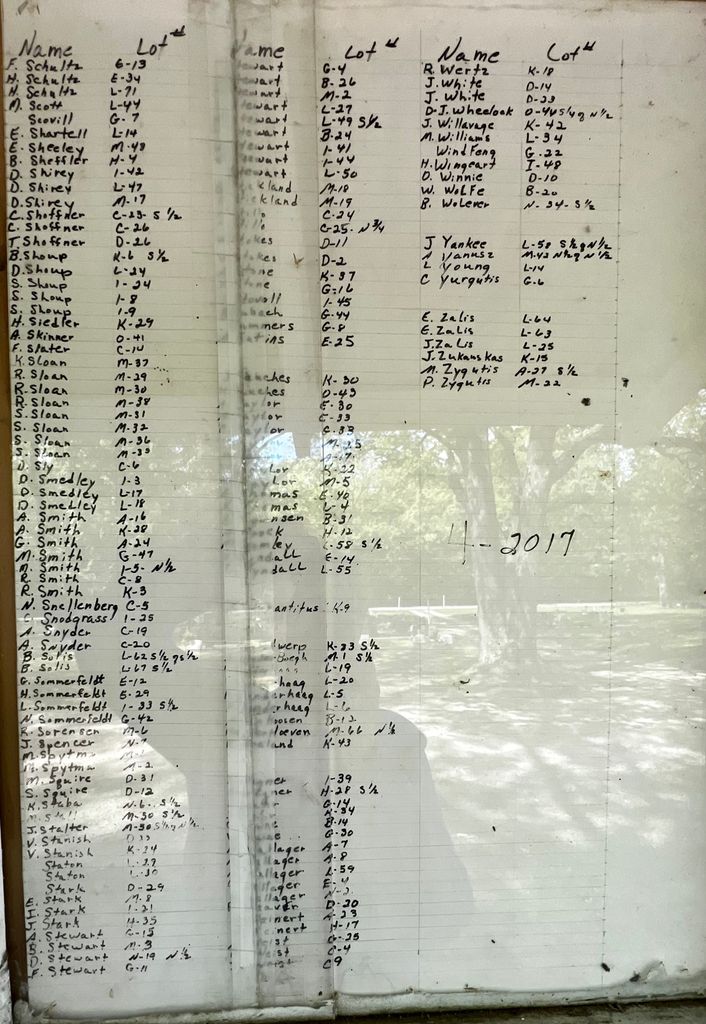 Name Lot #
F. Schultz G-13
H. Schultz E-34
H. Schultz L-71
M. Scott L-44
Scovill G-7
E. Shartell L-14
E. Sheeley M-48
B. Sheffler H-4
D. Shirey I-42
D. Shirey L-47
D. Shirey M-17
C. Shoffner C-23- S 1/2
C. Shoffner C-26
T. Shoffner D-26
B. Shoup K-6 S 1/2
D. Shoup L-24
S. Shoup I-24
S. Shoup I-8
S. Shoup I-9
H. Siedler K-29
A. Skinner O-41
F. Slater C-14
K. Sloan M-37
R. Sloan M-29
R. Sloan M-30
R. Sloan M-38
S. Sloan M-31
S. Sloan M-32
S. Sloan M-36
S. Sloan M-35
D. Sly C-6
D. Smedley I-3
D. Smedley L-17
D. Smedley L-18
A. Smith A-16
A. Smith K-28
G. Smith A-24
M. Smith G-47
M. Smith I-5- N 1/2
R. Smith C-8
R. Smith K-3
N. Snellenberg C-5
C. Snodgrass I-25
A. Snyder C-19
A. Snyder C-20
B. Solis L-62 S 1/2
B. Solis L-67 S 1/2
G. Sommerfeldt E-12
H. Sommerfeldt E-29
L. Sommerfeldt I-33 S 1/2
N. Sommerfeldt G-42
R. Sorensen M-6
J. Spencer N-7
M. Spytma
M. Spytma M-2
M. Squire D-31
S. Squire D-12
K. Staba N-6. S 1/2
M. Stall M-30 S 1/2
J. Stalter M-30
V. Stanish
V. Stanish K-24
Staton
Staton
Stark D-29
E. Stark M-8
I. Stark I-21
J. Stark H-35
A. Stewart G-15
B. Stewart M-3
D. Stewart N-19 N 1/2
F. Stewart G-11
Name Lot #
ewart G-4
ewart B-26
ewart M-2
ewart L-27
ewart L-49 S 1/2
ewart B-24
ewart I-41
ewart I-44
ewart L-50
ckland M-18
ckland M-19
C-24
C-25- N 3/4
kes D-11
kes D-2
one K-37
one G-16
ovall I-45
bach G-44
mmers G-8
atins E-25
nches K-30
nches O-43
ylor E-30
ylor E-33
ylor C-33
M-25
A-17
lor K-22
lor M-5
mas E-40
mas L-4
nsen B-31
k H-12
ley L-58 S 1/2
dall E-14
dall L-55
antitus K-9
twerp K-33 S 1/2
Bergh M-1 S 1/2
L-19
rhaag L-20
rhaag L-5
rhaag
oosen B-12
loeven M-66 N 1/2
and K-43
ner I-39
ner H-28 S 1/2
G-14
K-34
B-14
G-30
llager A-7
llager A-8
llager L-59
llager E-4
llager
aver D-20
inert A-23
inert H-17
ist G-25
ist C-4
C9
Name Lot #
R. Wertz K-18
J. White D-14
J. White D-23
D.J. Wheelock O-44 S 1/4 of N 1/2
J. Willavage K-42
M. Williams L-34
Windfeng G-22
H. Wingeart I-48
O. Winnie D-10
W. Wolfe B-20
B. Wolever N-34- S 1/2
J Yankee L-58 S 1/2 of N 1/2
A Yanusz M-43 N 1/2 of N 1/2
L Young L-14
C Yurgutis G-6
E. Zalis L-64
E. Zalis L-63
J. Zalis L-25
J. Zukauskas K-15
M. Zygutis A-27 S 1/2
P. Zygutis M-22
4-2017